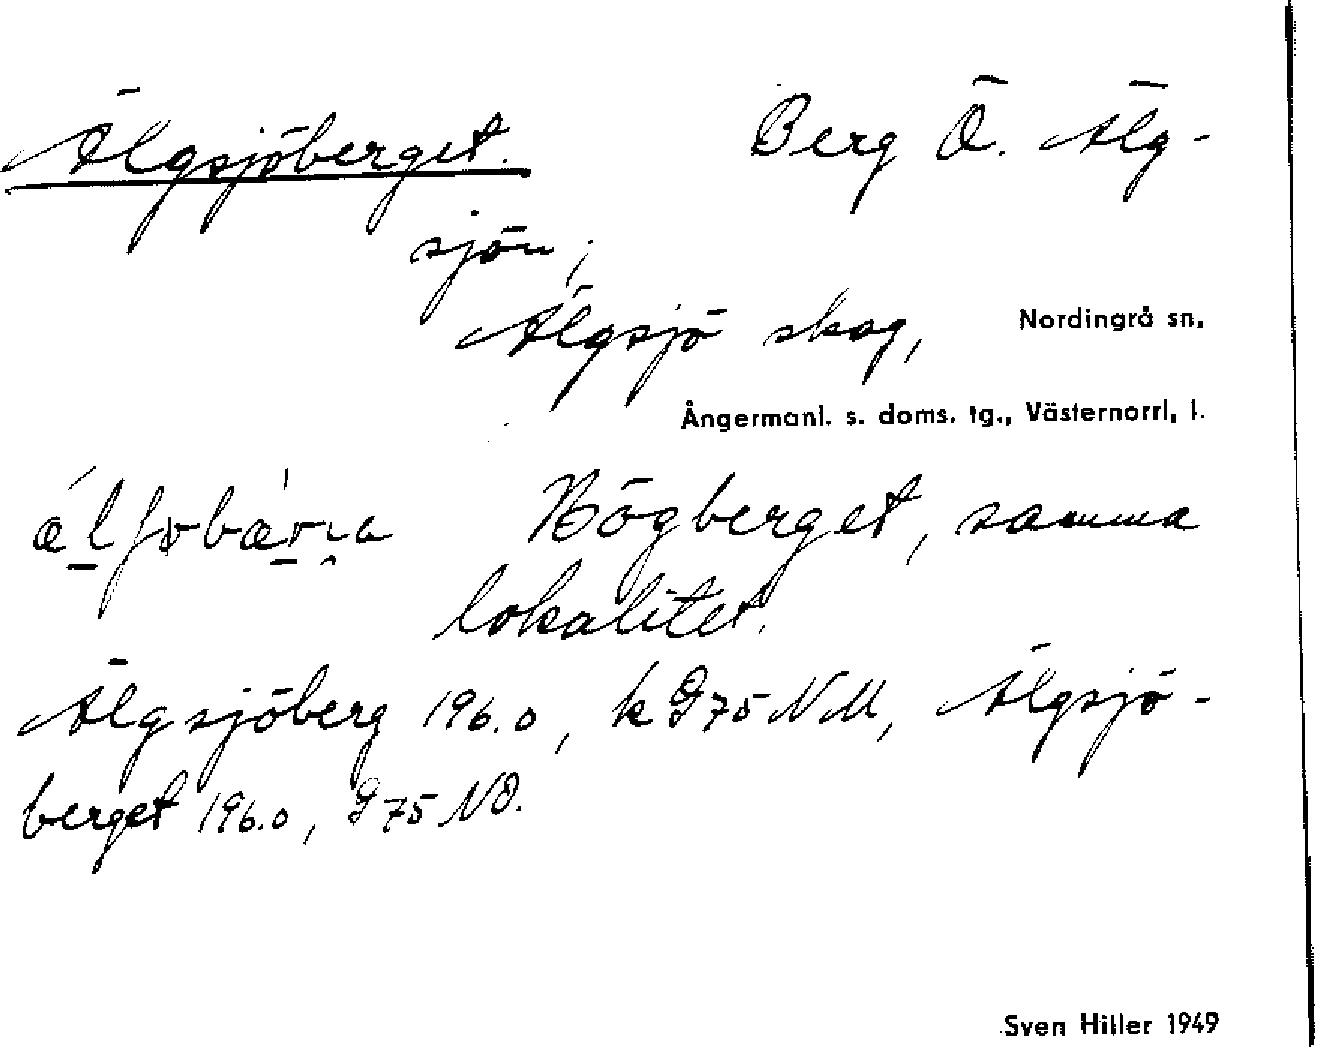 Älgsjöberget. Berg Ö. Älg-
sjön,
Älgsjö skog, Nordingrå sn,
Ångermanl. s. doms. tg., Västernorrl. l.
Högberget, samma
lokalitet.
Älgsjöberg 196.0, k G 75 NM, Älgsjö-
berget 196.0, G 75 NÖ.
Sven Hiller 1949